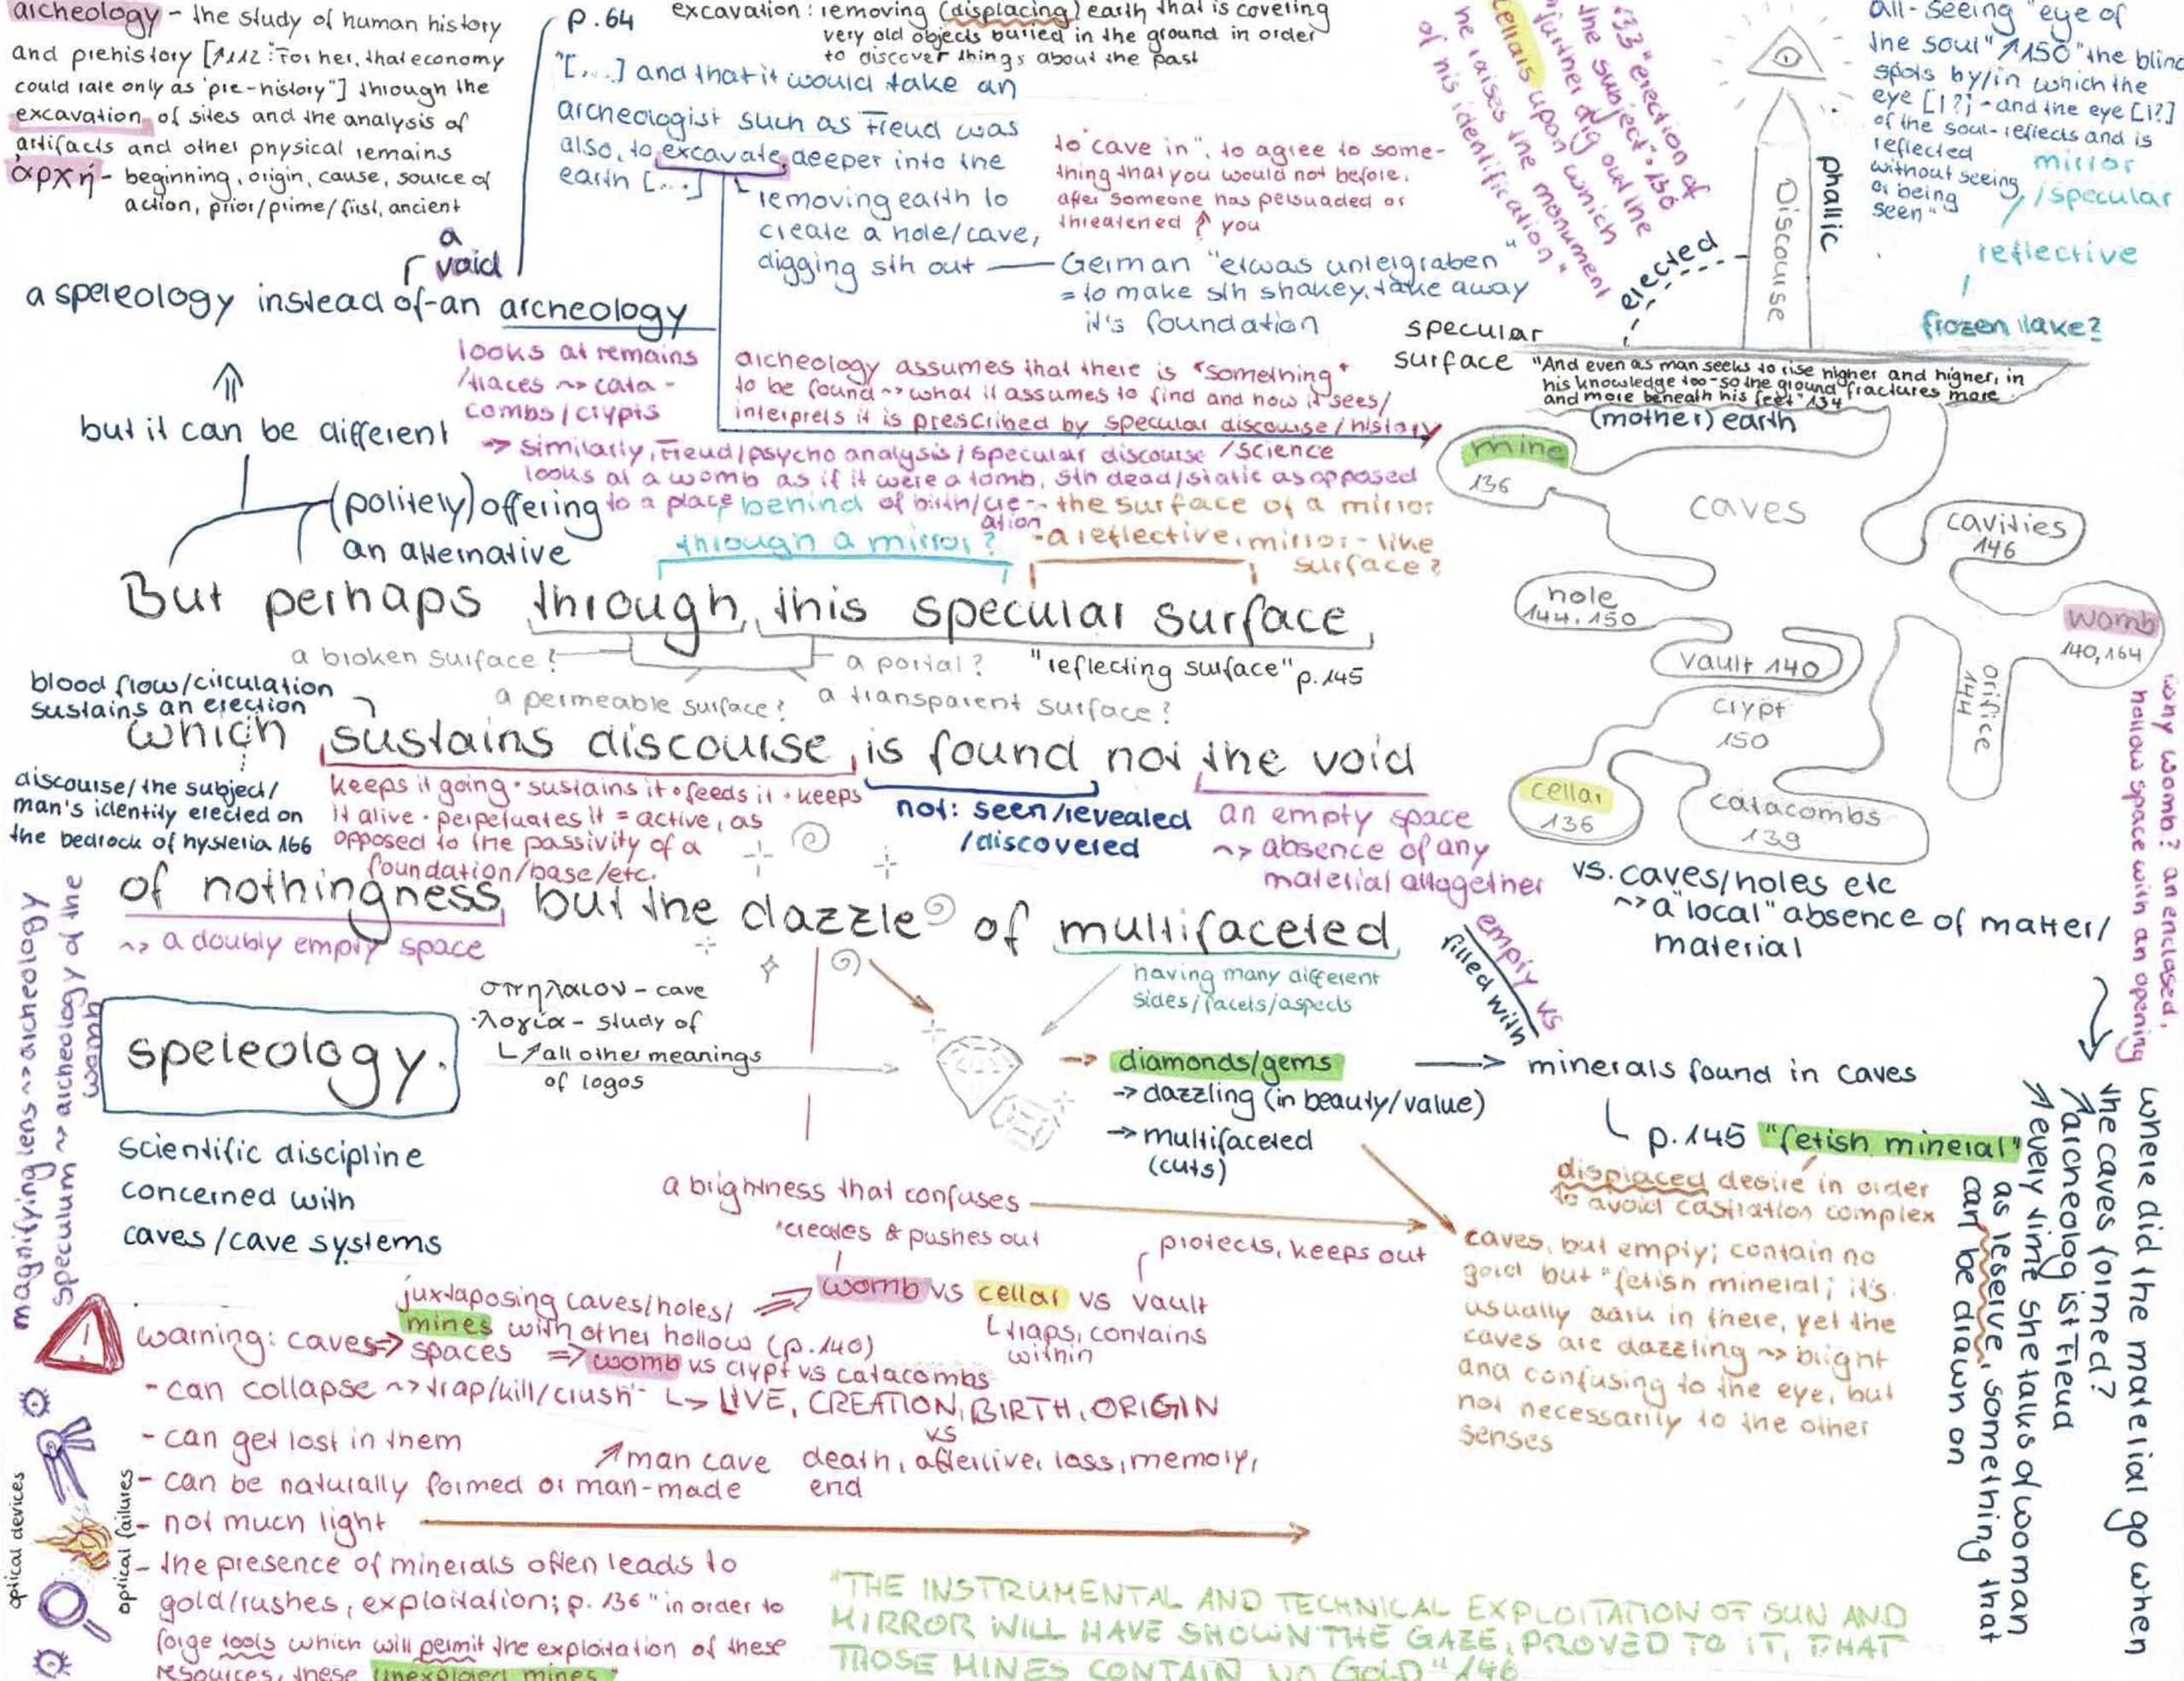 archeology - the study of human history
and prehistory [↗112 "For her, that economy
could rate only as 'pre-history'"] through the
excavation of sites and the analysis of
artifacts and other physical remains
ἀρχή - beginning, origin, cause, source of
action, prior/prime/first, ancient
p.64
"[...] and that it would take an
archeologist such as Freud was
also, to excavate deeper into the
earth [...]
excavation: removing (displacing) earth that is covering
very old objects buried in the ground in order
to discover things about the past
removing earth to
create a hole/cave,
digging sth out
to "cave in", to agree to some-
thing that you would not before,
after someone has persuaded or
threatened ↗ you
German "etwas untergraben"
= to make sth shakey, take away
it's foundation
133 "erection of
the subject". 136
further dig out the
cellars upon which
he raises the monument
of his identification"
erected
Discourse
phallic
all-seeing "eye of
the soul" ↗150 "the blind
spots by/in which the
eye [1?] - and the eye [1?]
of the soul - reflects and is
reflected
without seeing
or being
seen"
mirror
/specular
reflective
frozen lake?
a
void
a speleology instead of-an archeology
but it can be different
(politely) offering
an alternative
looks at remains
/traces ~> cata-
combs/crypts
archeology assumes that there is *something*
to be found ~> what it assumes to find and how it sees/
interprets it is prescribed by specular discourse/history
/science
→ similarly, Freud/psychoanalysis/specular discourse
looks at a womb as if it were a tomb, sth dead/static as opposed
to a place of birth/cre-
ation
behind
through a mirror?
- the surface of a mirror
- a reflective, mirror-like
surface?
specular
surface
"And even as man seeks to rise higher and higher, in
his knowledge too - so the ground fractures more
and more beneath his feet" 134
(mother) earth
mine
136
caves
cavities
146
hole
144, 150
womb
140, 164
vault 140
orifice
144
crypt
150
cellar
136
catacombs
139
why womb? an enclosed,
hollow space with an opening
But perhaps through this specular surface
a broken surface?
a portal?
"reflecting surface" p.145
a permeable surface?
a transparent surface?
blood flow/circulation
sustains an erection
which sustains discourse is found not the void
discourse/the subject/
man's identity erected on
the bedrock of hysteria 166
keeps it going • sustains it • feeds it • keeps
it alive • perpetuates it = active, as
opposed to the passivity of a
foundation/base/etc.
not: seen/revealed
/discovered
an empty space
~> absence of any
material altogether
vs. caves/holes etc
~> a "local" absence of matter/
material
of nothingness but the dazzle of multifaceted
~> a doubly empty space
having many different
sides/facets/aspects
empty vs
filled with
magnifying lens ~> archeology
speculum ~> archeology of the
womb
speleology.
σπήλαιον - cave
-λογία - study of
↗all other meanings
of logos
scientific discipline
concerned with
caves/cave systems
→ diamonds/gems
→ dazzling (in beauty/value)
→ multifaceted
(cuts)
minerals found in caves
p.145 "fetish mineral"
displaced desire in order
to avoid castration complex
a brightness that confuses
caves, but empty; contain no
gold but "fetish mineral; it's
usually dark in there, yet the
caves are dazzling ~> bright
and confusing to the eye, but
not necessarily to the other
senses
where did the material go when
the caves formed?
↗archeologist Freud
↗every time she talks of woman
as reserve, something that
can be drawn on
*creates & pushes out
protects, keeps out
womb vs cellar vs vault
traps, contains
within
juxtaposing caves/holes/
mines with other hollow (p.140)
spaces ⇒ womb vs crypt vs catacombs
LIVE, CREATION, BIRTH, ORIGIN
vs
death, afterlive, loss, memory,
end
!
warning: caves
- can collapse ~> trap/kill/crush
- can get lost in them
↗man cave
- can be naturally formed or man-made
- not much light
- the presence of minerals often leads to
gold/rushes, exploitation; p. 136 "in order to
forge tools which will permit the exploitation of these
resources, these unexplored mines"
optical devices
optical failures
"THE INSTRUMENTAL AND TECHNICAL EXPLOITATION OF SUN AND
MIRROR WILL HAVE SHOWN THE GAZE, PROVED TO IT, THAT
THOSE MINES CONTAIN NO GOLD" 146